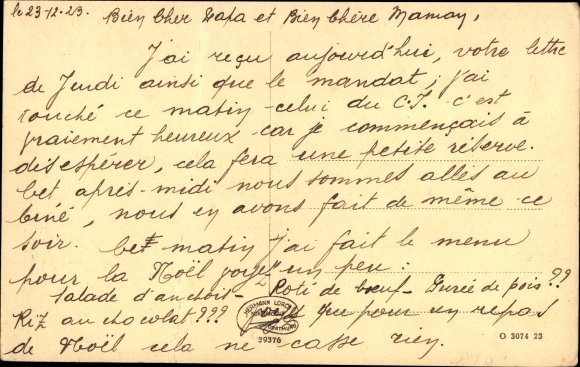 le 23-12-23. Bien Cher Papa et Bien Chère Maman,
J'ai reçu aujourd'hui, votre lettre
de Jeudi ainsi que le mandat; j'ai
touché ce matin celui du C.F. c'est
vraiement heureux car je commençais à
désespérer, cela fera une petite réserve.
Cet après-midi nous sommes allés au
Ciné, nous en avons fait de même ce
soir. Ce matin j'ai fait le menu
pour la Noël voyez-un peu:
Salade d'anchois - Roti de bœuf - Purée de pois??
Riz au chocolat??? que pour un repas
de Noël cela ne casse rien.
HERMANN LORCH
DORTMUND
39376
O 3074 23